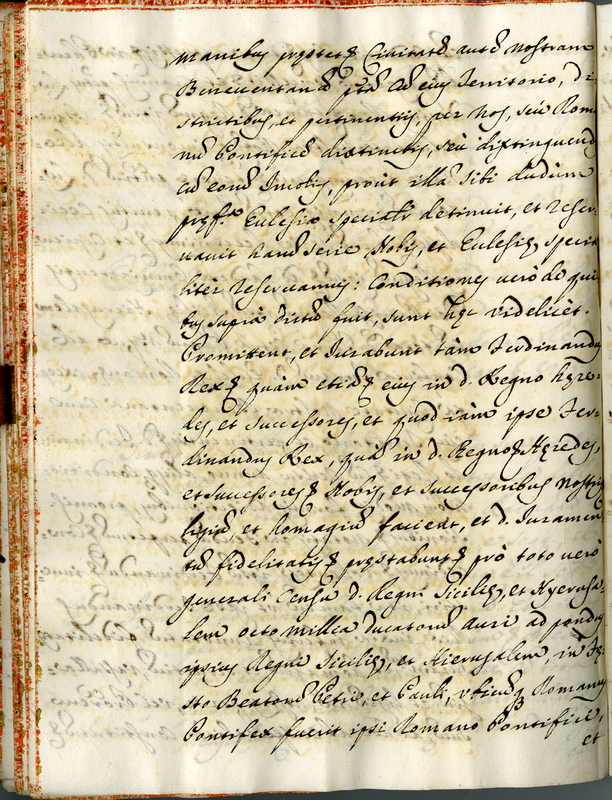 manibus prestet, Civitatē autē nostram
Beneventanā p̃tā cū eius Territorio, di-
strictibus, et pertinentiis, per nos, seù Rom
nū Pontificē distinctis, seù distinguend
cū eorū Incolis, proùt illā sibi dudùm
pręf.ta Eulesia specialr̃ detinuit, et reser-
vavit hanc serie Nobis, et Eulesię speciā
litèr reservamus: Conditiones verò de qui
bus suprà dictū fuit, sunt hęc videlicèt.
Promittent, et Iurabunt tàm Ferdinandus
Rex, quàm etiā eius in d. Regno hęre-
des, et successores, et quod iàm ipse Fer-
dinandus Rex, quā in d. Regno Hęredes,
et successores Nobis, et successoribus nostris
ligiū, et homagiū facient, et d. Iuramen
tū fidelitatis pręstabunt, prò toto verò
generali Censu d. Regni Sicilię, et Hyerusa-
lem octo millia ducatorū Auri ad pondus
ipsius Regni Sicilię, et Hierusalem, in Fę-
sto Beatorū Petri, et Pauli, vbicūq Romanus
Pontifex fuerit ipsi Romano Pontifici,
et